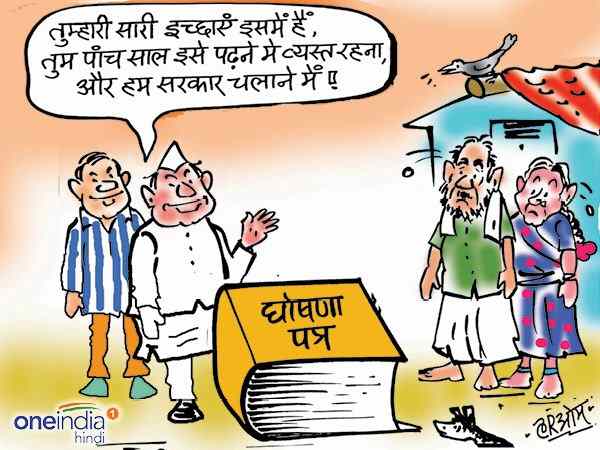 तुम्हारी सारी इच्छाएं इसमें हैं,
तुम पाँच साल इसे पढ़ने मे व्यस्त रहना,
और हम सरकार चलाने में !!
घोषणा
पत्र
oneindia
हिंदी
हरिओम